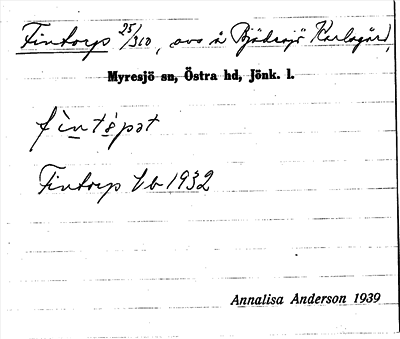 Fintorp 25/310, avs å Bjädesjö Karlsgård,
Myresjö sn, Östra hd, Jönk. l.
fìntòpət
Fintorp Vb 1932
Annalisa Anderson 1939